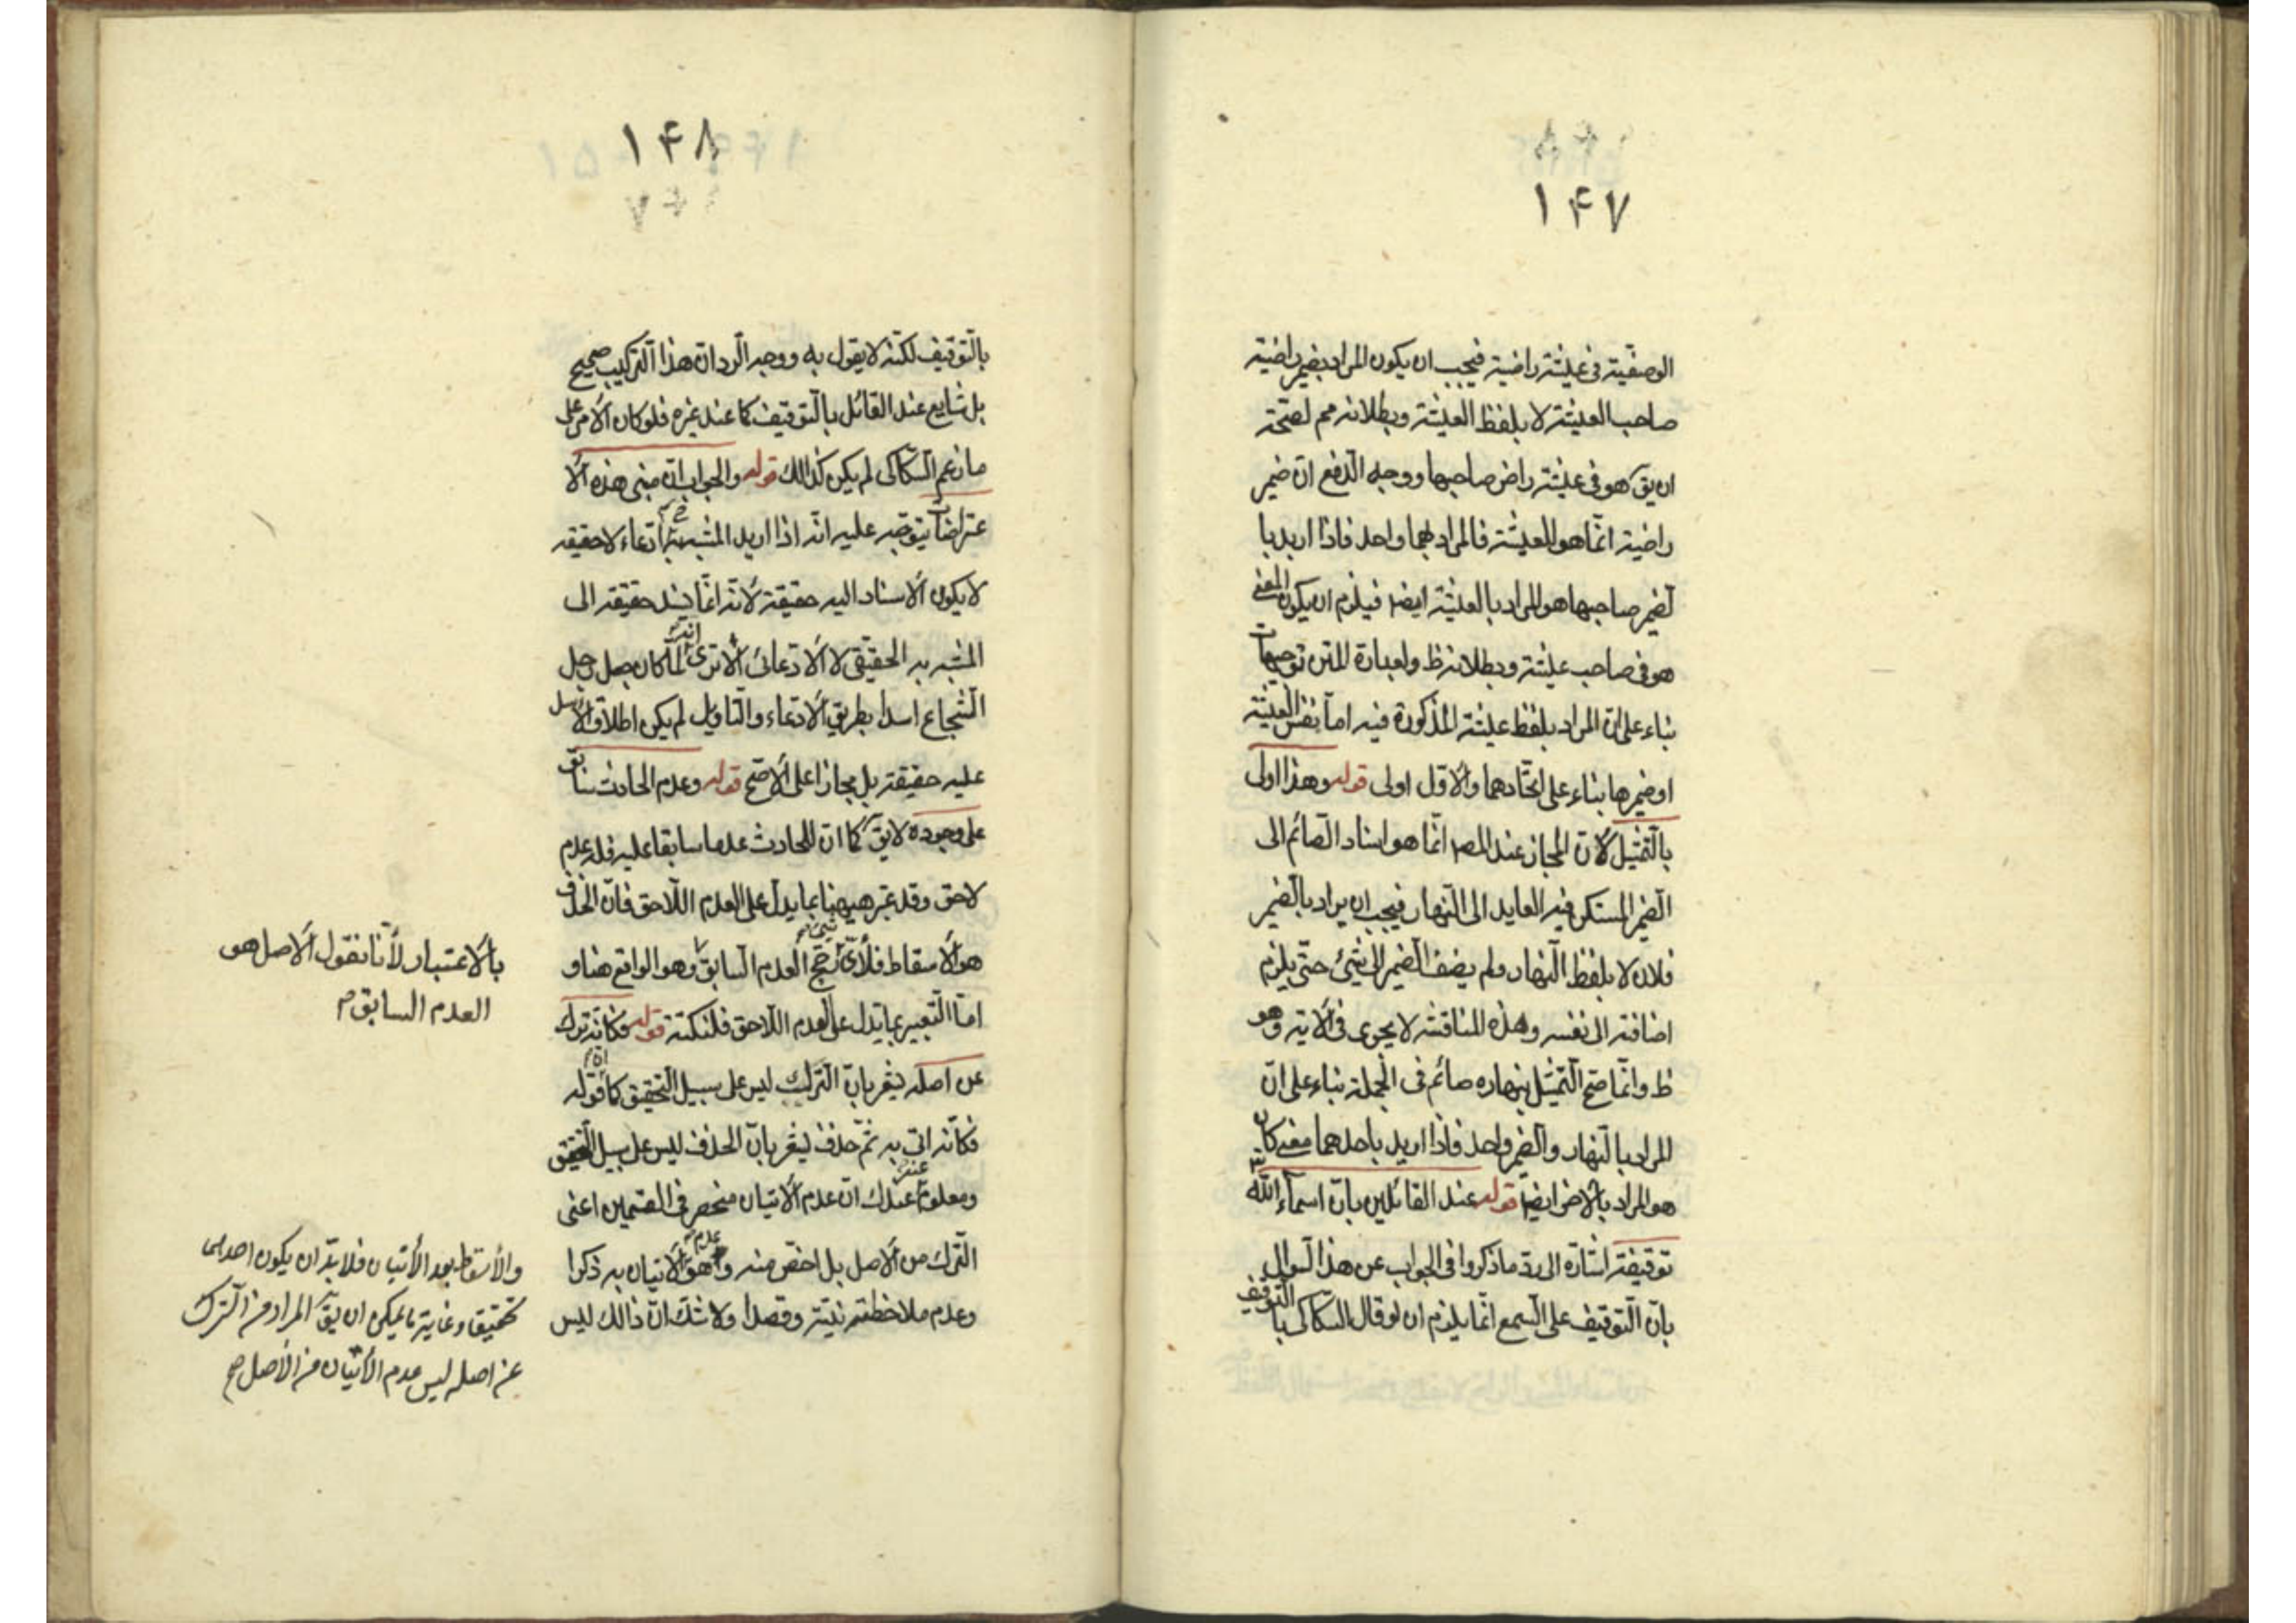 ۱۴۷
الوصفية فى عيشة راضية فيجب ان يكون المراد بضمير راضية
صاحب العيشة لا بلفظ العيشة وبطلانه مم لصحّة
ان يق هو فى عيشة راض صاحبها ووجه الدّفع انّ ضمير
راضية انّما هو للعيشة فالمراد بهما واحد فاذا اريد با
لضّمير صاحبها هو المراد بالعيشة ايضا فيلزم ان يكون المعنى
هو فى صاحب عيشة وبطلانه ظ ولعبارة المتن توجيهات
بناء على انّ المراد بلفظ عيشة المذكورة فيه امّا نفس العيشة
او ضميرها بناء على اتّحادهما والاوّل اولى قوله وهذا اولى
بالتّمثيل لانّ المجاز عند المص انّما هو اسناد الصّائم الى
الضّمير المستكن فيه العايد الى النّهار فيجب ان يراد بالضّمير
فلان لا بلفظ النّهار ولم يضف الضّمير الى شئ حتّى يلزم
اضافته الى نفسه وهذه المناقشه لا يجرى فى الاية وهو
ظ وانّما صحّ التّمثيل بنهاره صائم فى الجملة بناء على انّ
المراد بالنّهار والضّمير واحد فاذا اريد باحدهما معنى كان
هو المراد بالاخر ايضا قوله عند القائلين بانّ اسمآء اللّه
توقيفيّة اشارة الى ردّ ما ذكروا فى الجواب عن هذا السّوال
بانّ التّوقيف على السّمع انّما يلزم ان لو قال السّكاكى با التّوقيف
۱۴۸
بالتّوقيف لكنّه لا يقول به ووجه الرّد انّ هذا التّركيب صحيح
بل شايع عند القائل بالتّوقيف كما عند غيره فلو كان الامر على
ما زعم السّكاكى لم يكن كذالك قوله والجواب انّ مبنى هذه الا
عتراضات يتوجّه عليه انّه اذا اريد المشبه به ادّعاء لا حقيقه
لا يكون الاسناد اليه حقيقة لانّه انّما يسند حقيقه الى
المشبه به الحقيقى لا الادّعائى الا ترى انّه لمّا كان جعل رجل
الشّجاع اسدا بطريق الادّعاء والتّاويل لم يكن اطلاق الاسد
عليه حقيقة بل مجازا على الاصحّ قوله وعدم الحادث سابق
على وجوده لا يق كما انّ للحادث عدما سابقا عليه فله عدم
لاحق وقد عبّر ههنا بما يدل على العدم اللّاحق فانّ الحذف
هو الاسقاط فلاىّ شئ رجّح العدم السّابق وهو الواقع هنا و
امّا التّعبير بما يدل على العدم اللّاحق فلنكتة قوله فكانّه ترك
عن اصله يشعر بانّ التّرك ليس على سبيل التّحقيق كما انّ قوله
فكانّه اتى به ثمّ حذف ليشعر بانّ الحذف ليس على سبيل التّحقيق
ومعلوم عندك انّ عدم الاتيان منحصر فى القسمين اعنى
التّرك من الاصل بل اخصّ منه وهو عدم الاتيان به ذكرا
وعدم ملاحظته نيّة وقصدا ولا شكّ انّ ذالك ليس
بالاعتبار لانّا نقول الاصل هو
العدم السابق م
والاسقاط بعد الاتيان فلا بدّ ان يكون احدهما
تحقيقا وغاية ما يمكن ان يق المراد من الترك
عن اصله ليس عدم الاتيان من الاصل صح